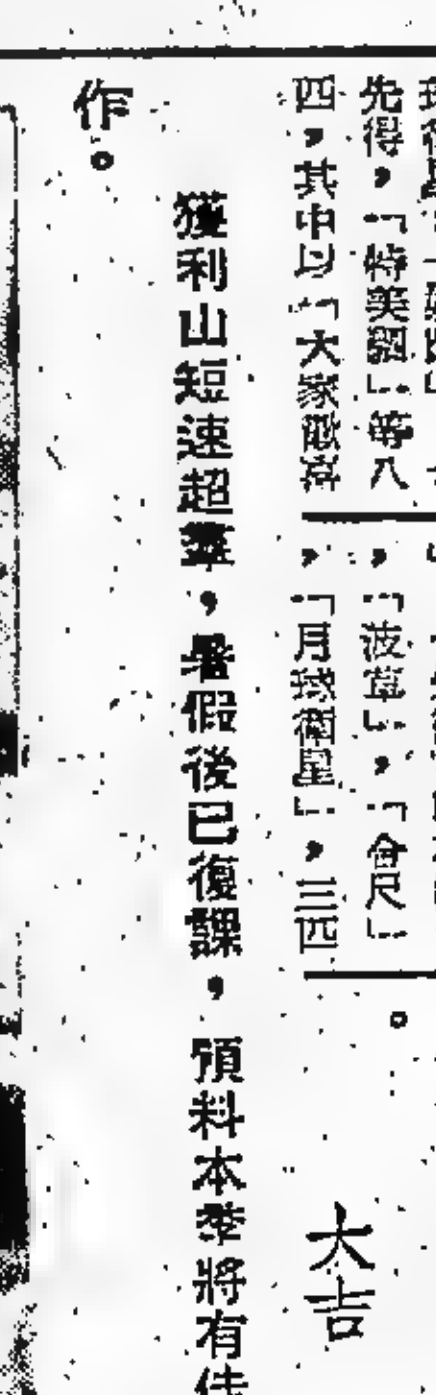 先得，「特美國」等八
四，其中以「大家歡喜
，「波草」，「合尺」
，「月球衞星」，三匹
。
大吉
獲利山短速超羣，暑假後已復課，預料本季將有佳
作。